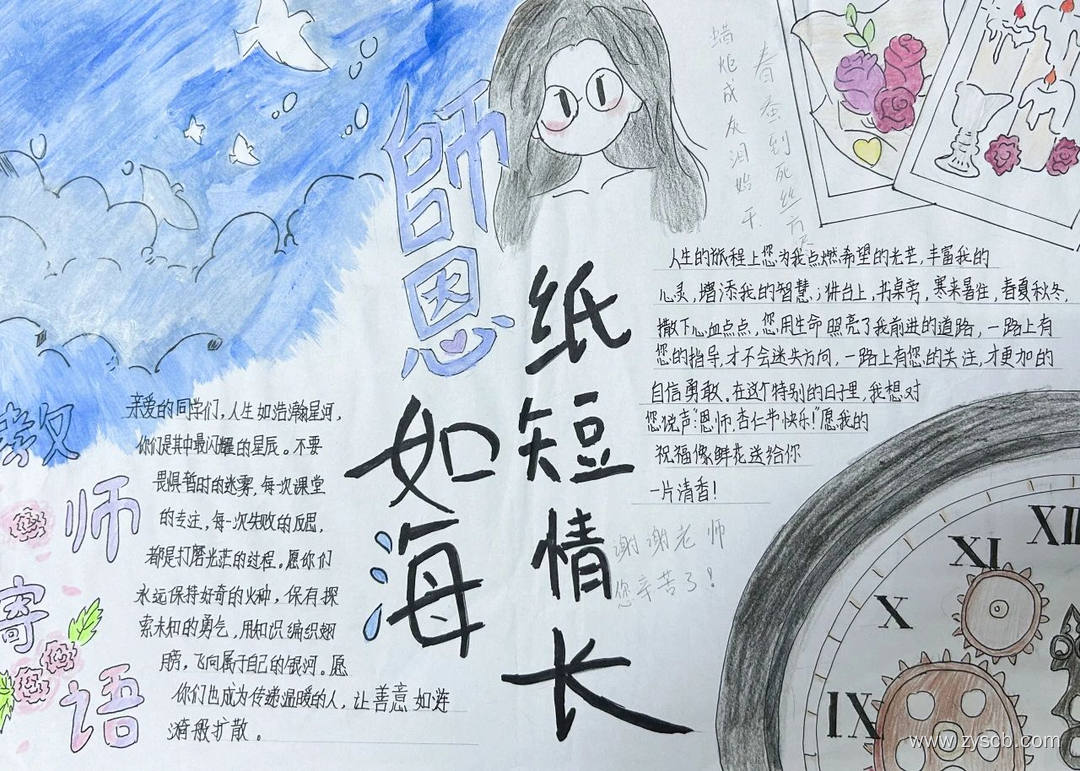 師恩如海
纸短情长
蜡炬成灰泪始干
春蚕到死丝方
人生的旅程上您为我点燃希望的光芒,丰富我的
心灵,增添我的智慧;讲台上,书桌旁,寒来暑往,春夏秋冬,
撒下心血点点,您用生命照亮了我前进的道路,一路上有
您的指导,才不会迷失方向,一路上有您的关注,才更加的
自信勇敢。在这个特别的日子里,我想对
您说声"恩师,杏仁节快乐!"愿我的
祝福像鲜花送给你
一片清香!
谢谢老师
您辛苦了!
教师寄语
亲爱的同学们,人生如浩瀚星河,
你们是其中最闪耀的星辰。不要
畏惧暂时的迷雾,每次课堂
的专注,每一次失败的反思,
都是打磨光芒的过程。愿你们
永远保持好奇的火种,保有探
索未知的勇气,用知识编织翅
膀,飞向属于自己的银河。愿
你们也成为传递温暖的人,让善意如涟
漪般扩散。
XII
XI
X
IX
www.zyscb.com